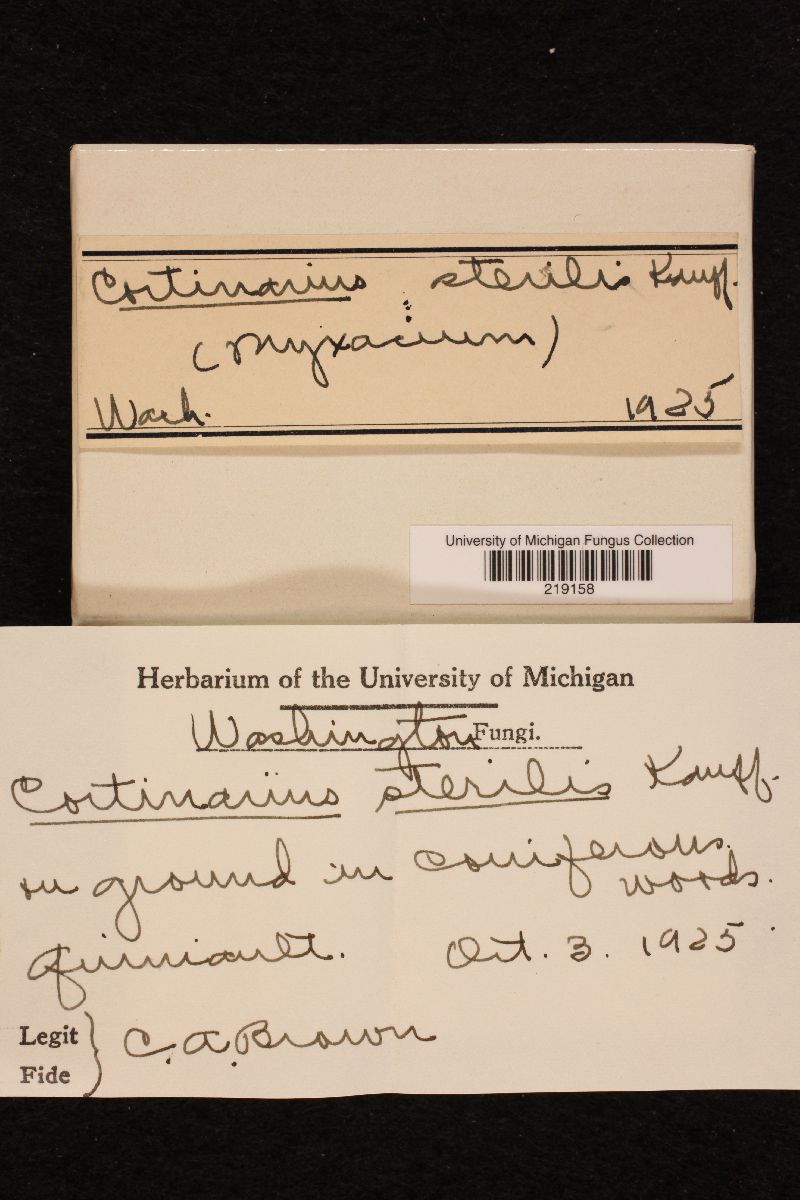 Cortinarius sterilis Kauff.
(Myxacium)
Wash. 1925
University of Michigan Fungus Collection
219158
Herbarium of the University of Michigan
Washington Fungi.
Cortinarius sterilis Kauff.
on ground in coniferous
woods.
Quiniault. Oct. 3. 1925
Legit
Fide
C. A. Brown